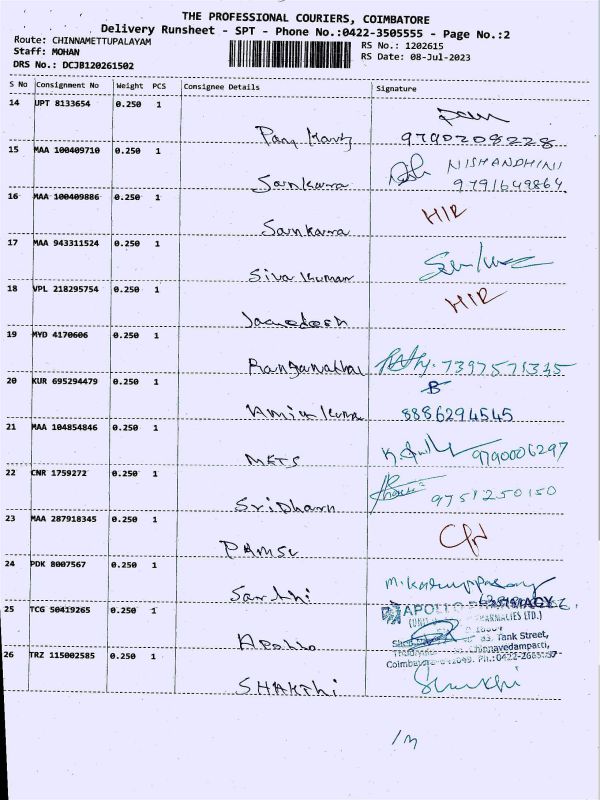 THE PROFESSIONAL COURIERS, COIMBATORE
Delivery Runsheet - SPT - Phone No.:0422-3505555 - Page No.:2
Route: CHINNAMETTUPALAYAM
RS No.: 1202615
Staff: MOHAN
RS Date: 08-Jul-2023
DRS No.: DCJB120261502
S No Consignment No Weight PCS Consignee Details Signature
14 UPT 8133654 0.250 1
9790208228
15 MAA 100409710 0.250 1 Sankara NISHANDHINI
9791649864
16 MAA 100409886 0.250 1 Sankara HIR
17 MAA 943311524 0.250 1 Siva Kumar
18 VPL 218295754 0.250 1 Jagadeesh HIR
19 MYD 4170606 0.250 1 7397571335
20 KUR 695294479 0.250 1
8886294545
21 MAA 104854846 0.250 1 METS 9790006297
22 CNR 1759272 0.250 1 SriDharn 9751250150
23 MAA 287918345 0.250 1
24 PDK 8007567 0.250 1
25 TCG 50419265 0.250 1 Apollo APOLLO PHARMACY
PHARMACIES LTD.)
Tank Street,
Chinnavedampatti,
26 TRZ 115002585 0.250 1 SHAKThi Shakthi